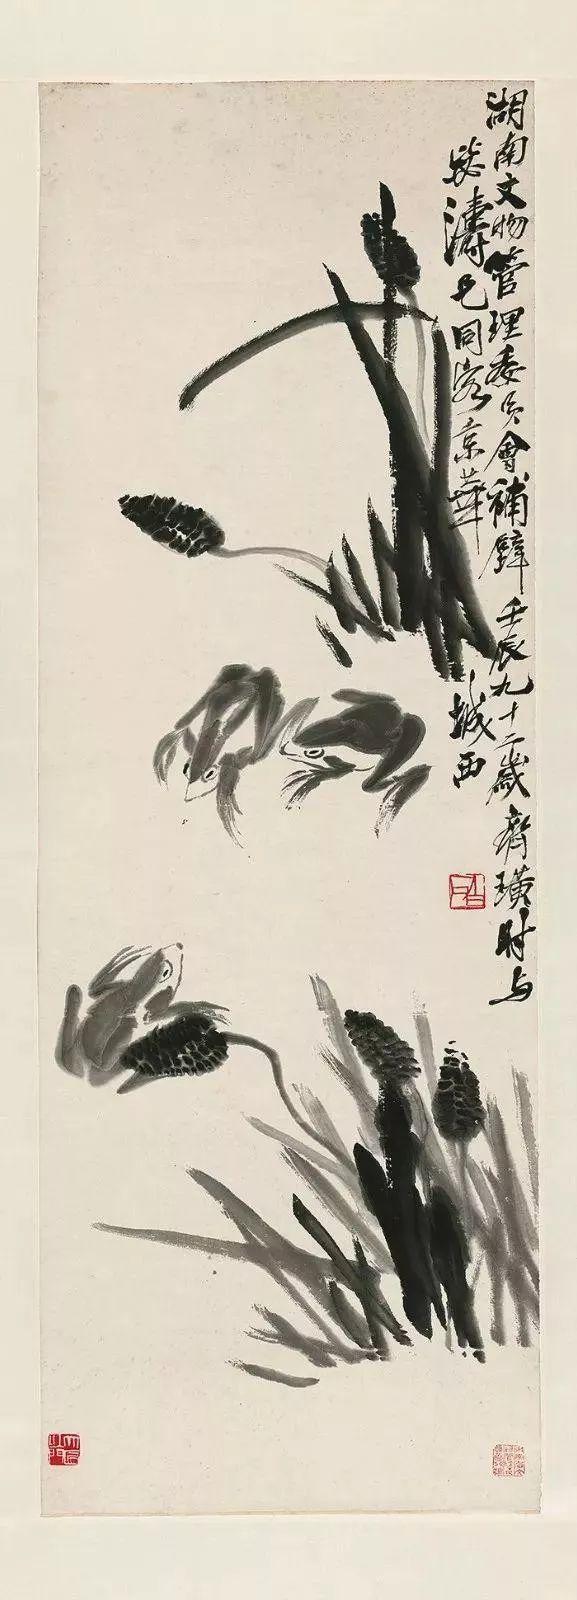 湖南文物管理委員會補壁 壬辰九十二歲齊璜時与
濤兄同客京華城西